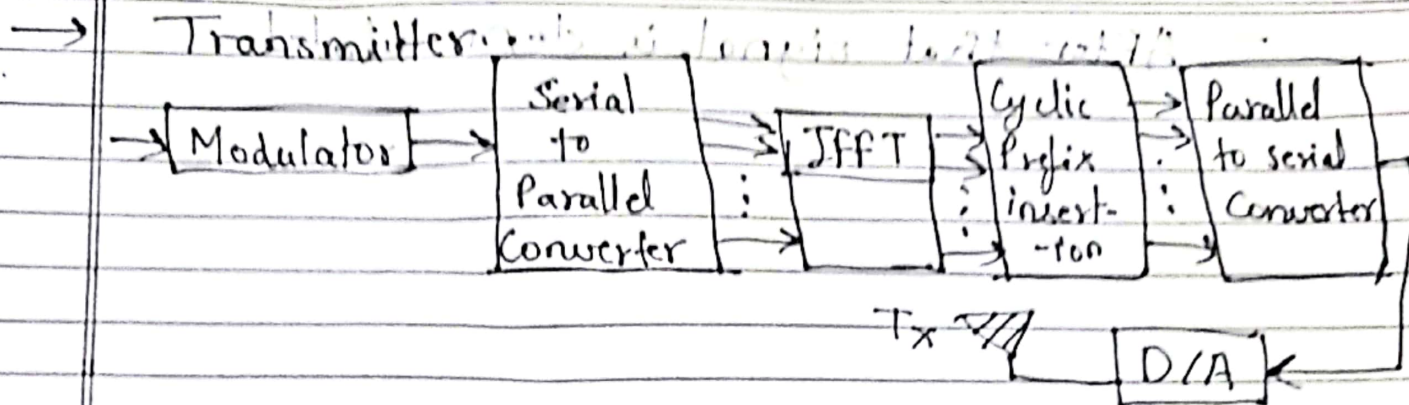 Transmitter.
Modulator
Serial
to
Parallel
Converter
IFFT
Cyclic
Prefix
insert-
-ion
Parallel
to serial
Converter
Tx
D/A